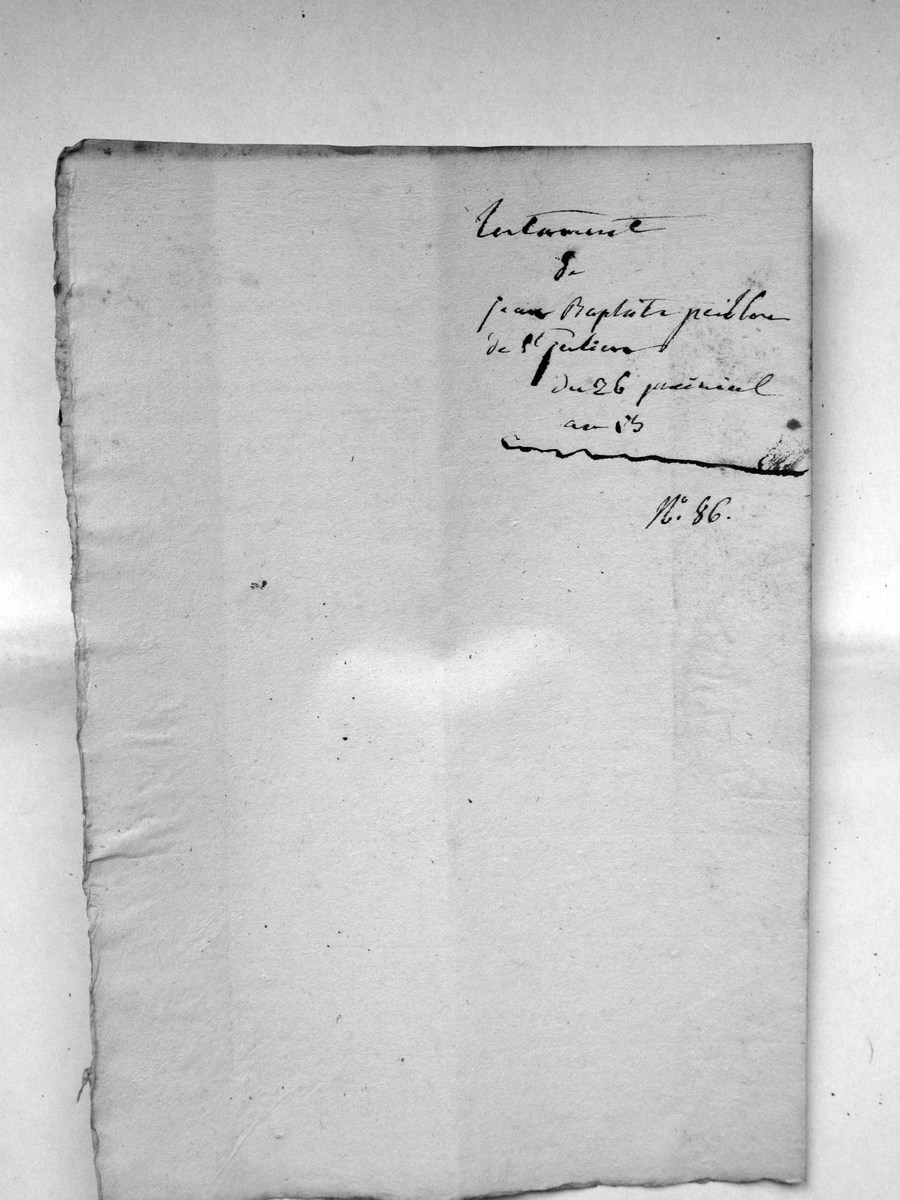 Testament
de
jean Baptiste
de St julien
du 26 prairial
an 13
N.º 86.